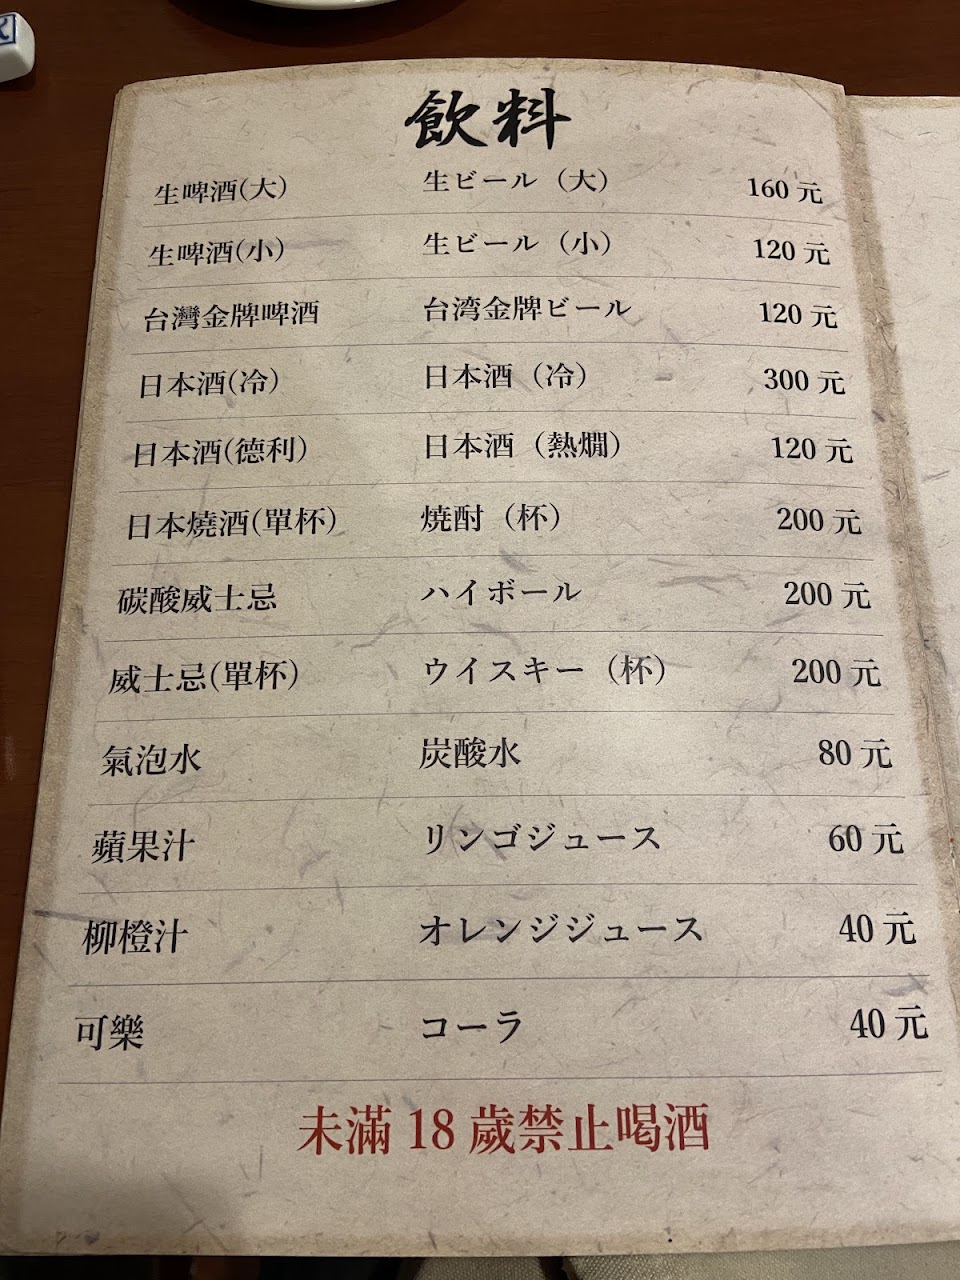 飲料
生啤酒(大) 生ビール（大） 160 元
生啤酒(小) 生ビール（小） 120 元
台灣金牌啤酒 台湾金牌ビール 120 元
日本酒(冷) 日本酒（冷） 300 元
日本酒(德利) 日本酒（熱燗） 120 元
日本燒酒(單杯) 焼酎（杯） 200 元
碳酸威士忌 ハイボール 200 元
威士忌(單杯) ウイスキー（杯） 200 元
氣泡水 炭酸水 80 元
蘋果汁 リンゴジュース 60 元
柳橙汁 オレンジジュース 40 元
可樂 コーラ 40 元
未滿 18 歲禁止喝酒